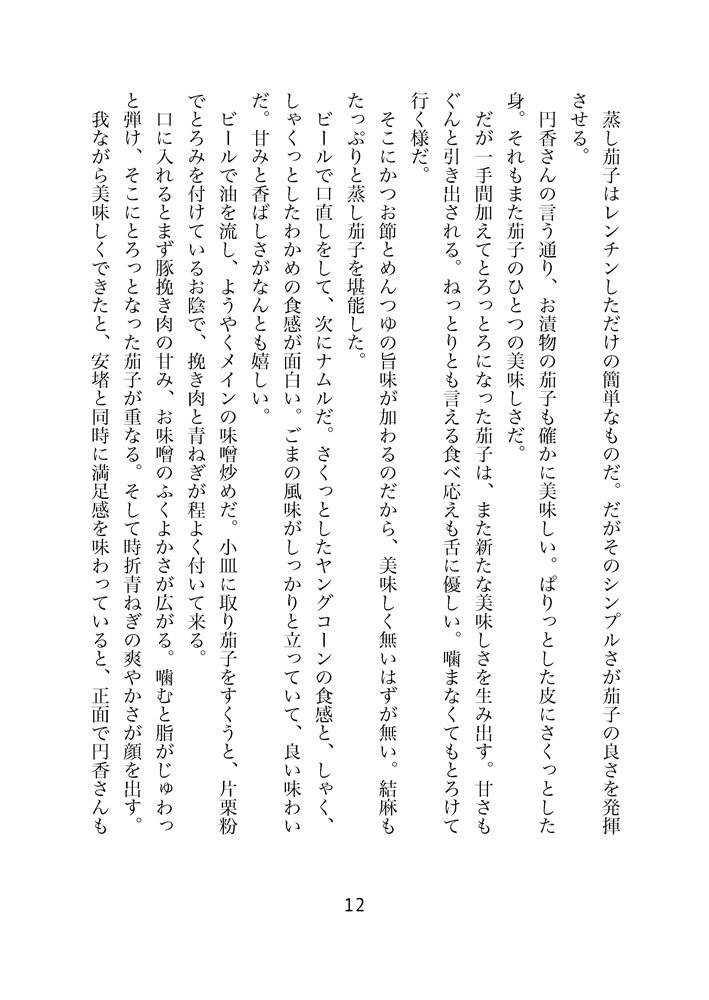 蒸し茄子はレンチンしただけの簡単なものだ。だがそのシンプルさが茄子の良さを発揮
させる。
　円香さんの言う通り、お漬物の茄子も確かに美味しい。ぱりっとした皮にさくっとした
身。それもまた茄子のひとつの美味しさだ。
　だが一手間加えてとろっとろになった茄子は、また新たな美味しさを生み出す。甘さも
ぐんと引き出される。ねっとりとも言える食べ応えも舌に優しい。噛まなくてもとろけて
行く様だ。
　そこにかつお節とめんつゆの旨味が加わるのだから、美味しく無いはずが無い。結麻も
たっぷりと蒸し茄子を堪能した。
　ビールで口直しをして、次にナムルだ。さくっとしたヤングコーンの食感と、しゃく、
しゃくっとしたわかめの食感が面白い。ごまの風味がしっかりと立っていて、良い味わい
だ。甘みと香ばしさがなんとも嬉しい。
　ビールで油を流し、ようやくメインの味噌炒めだ。小皿に取り茄子をすくうと、片栗粉
でとろみを付けているお陰で、挽き肉と青ねぎが程よく付いて来る。
　口に入れるとまず豚挽き肉の甘み、お味噌のふくよかさが広がる。噛むと脂がじゅわっ
と弾け、そこにとろっとなった茄子が重なる。そして時折青ねぎの爽やかさが顔を出す。
　我ながら美味しくできたと、安堵と同時に満足感を味わっていると、正面で円香さんも
12